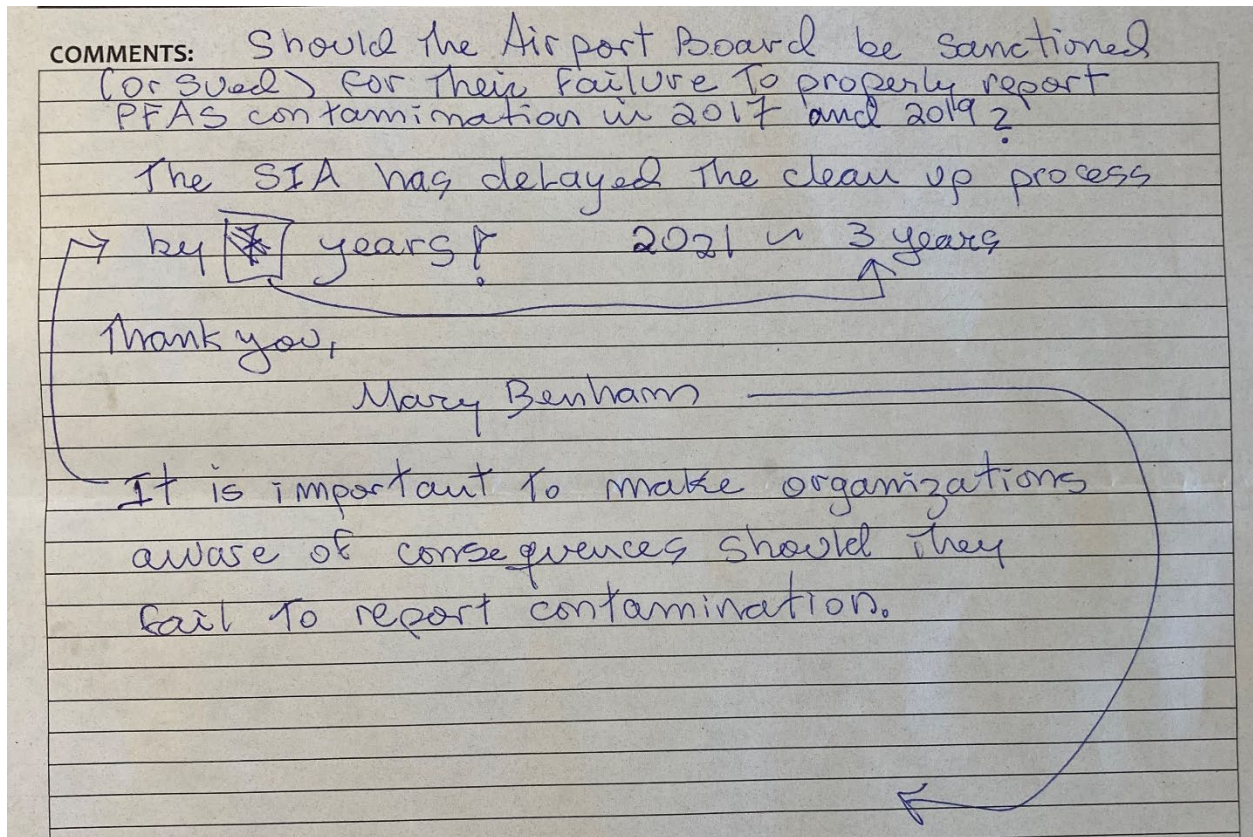 COMMENTS: Should the Airport Board be sanctioned
(or sued) for their failure to properly report
PFAS contamination in 2017 and 2019?
The SIA has delayed the clean up process
by years! 2021 3 years
Thank you,
Mary Benham
It is important to make organizations
aware of consequences should they
fail to report contamination.